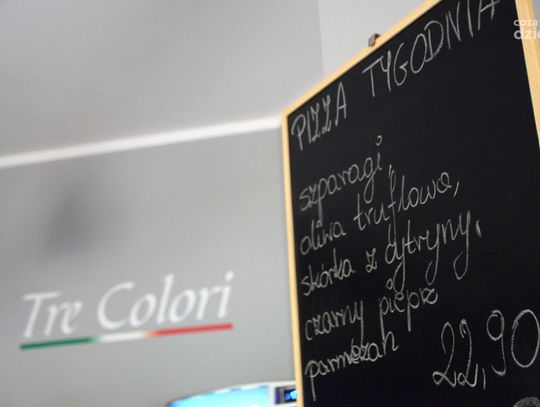 PIZZA TYGODNIA
szparagi,
oliwa truflowa,
skórka z cytryny,
czarny pieprz
parmezan
22,90
Tre Colori